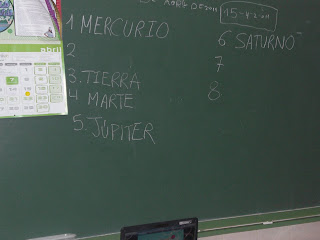 15-4-2011
1 MERCURIO
2
3. TIERRA
4 MARTE
5. JUPITER
6 SATURNO
7
8
abril